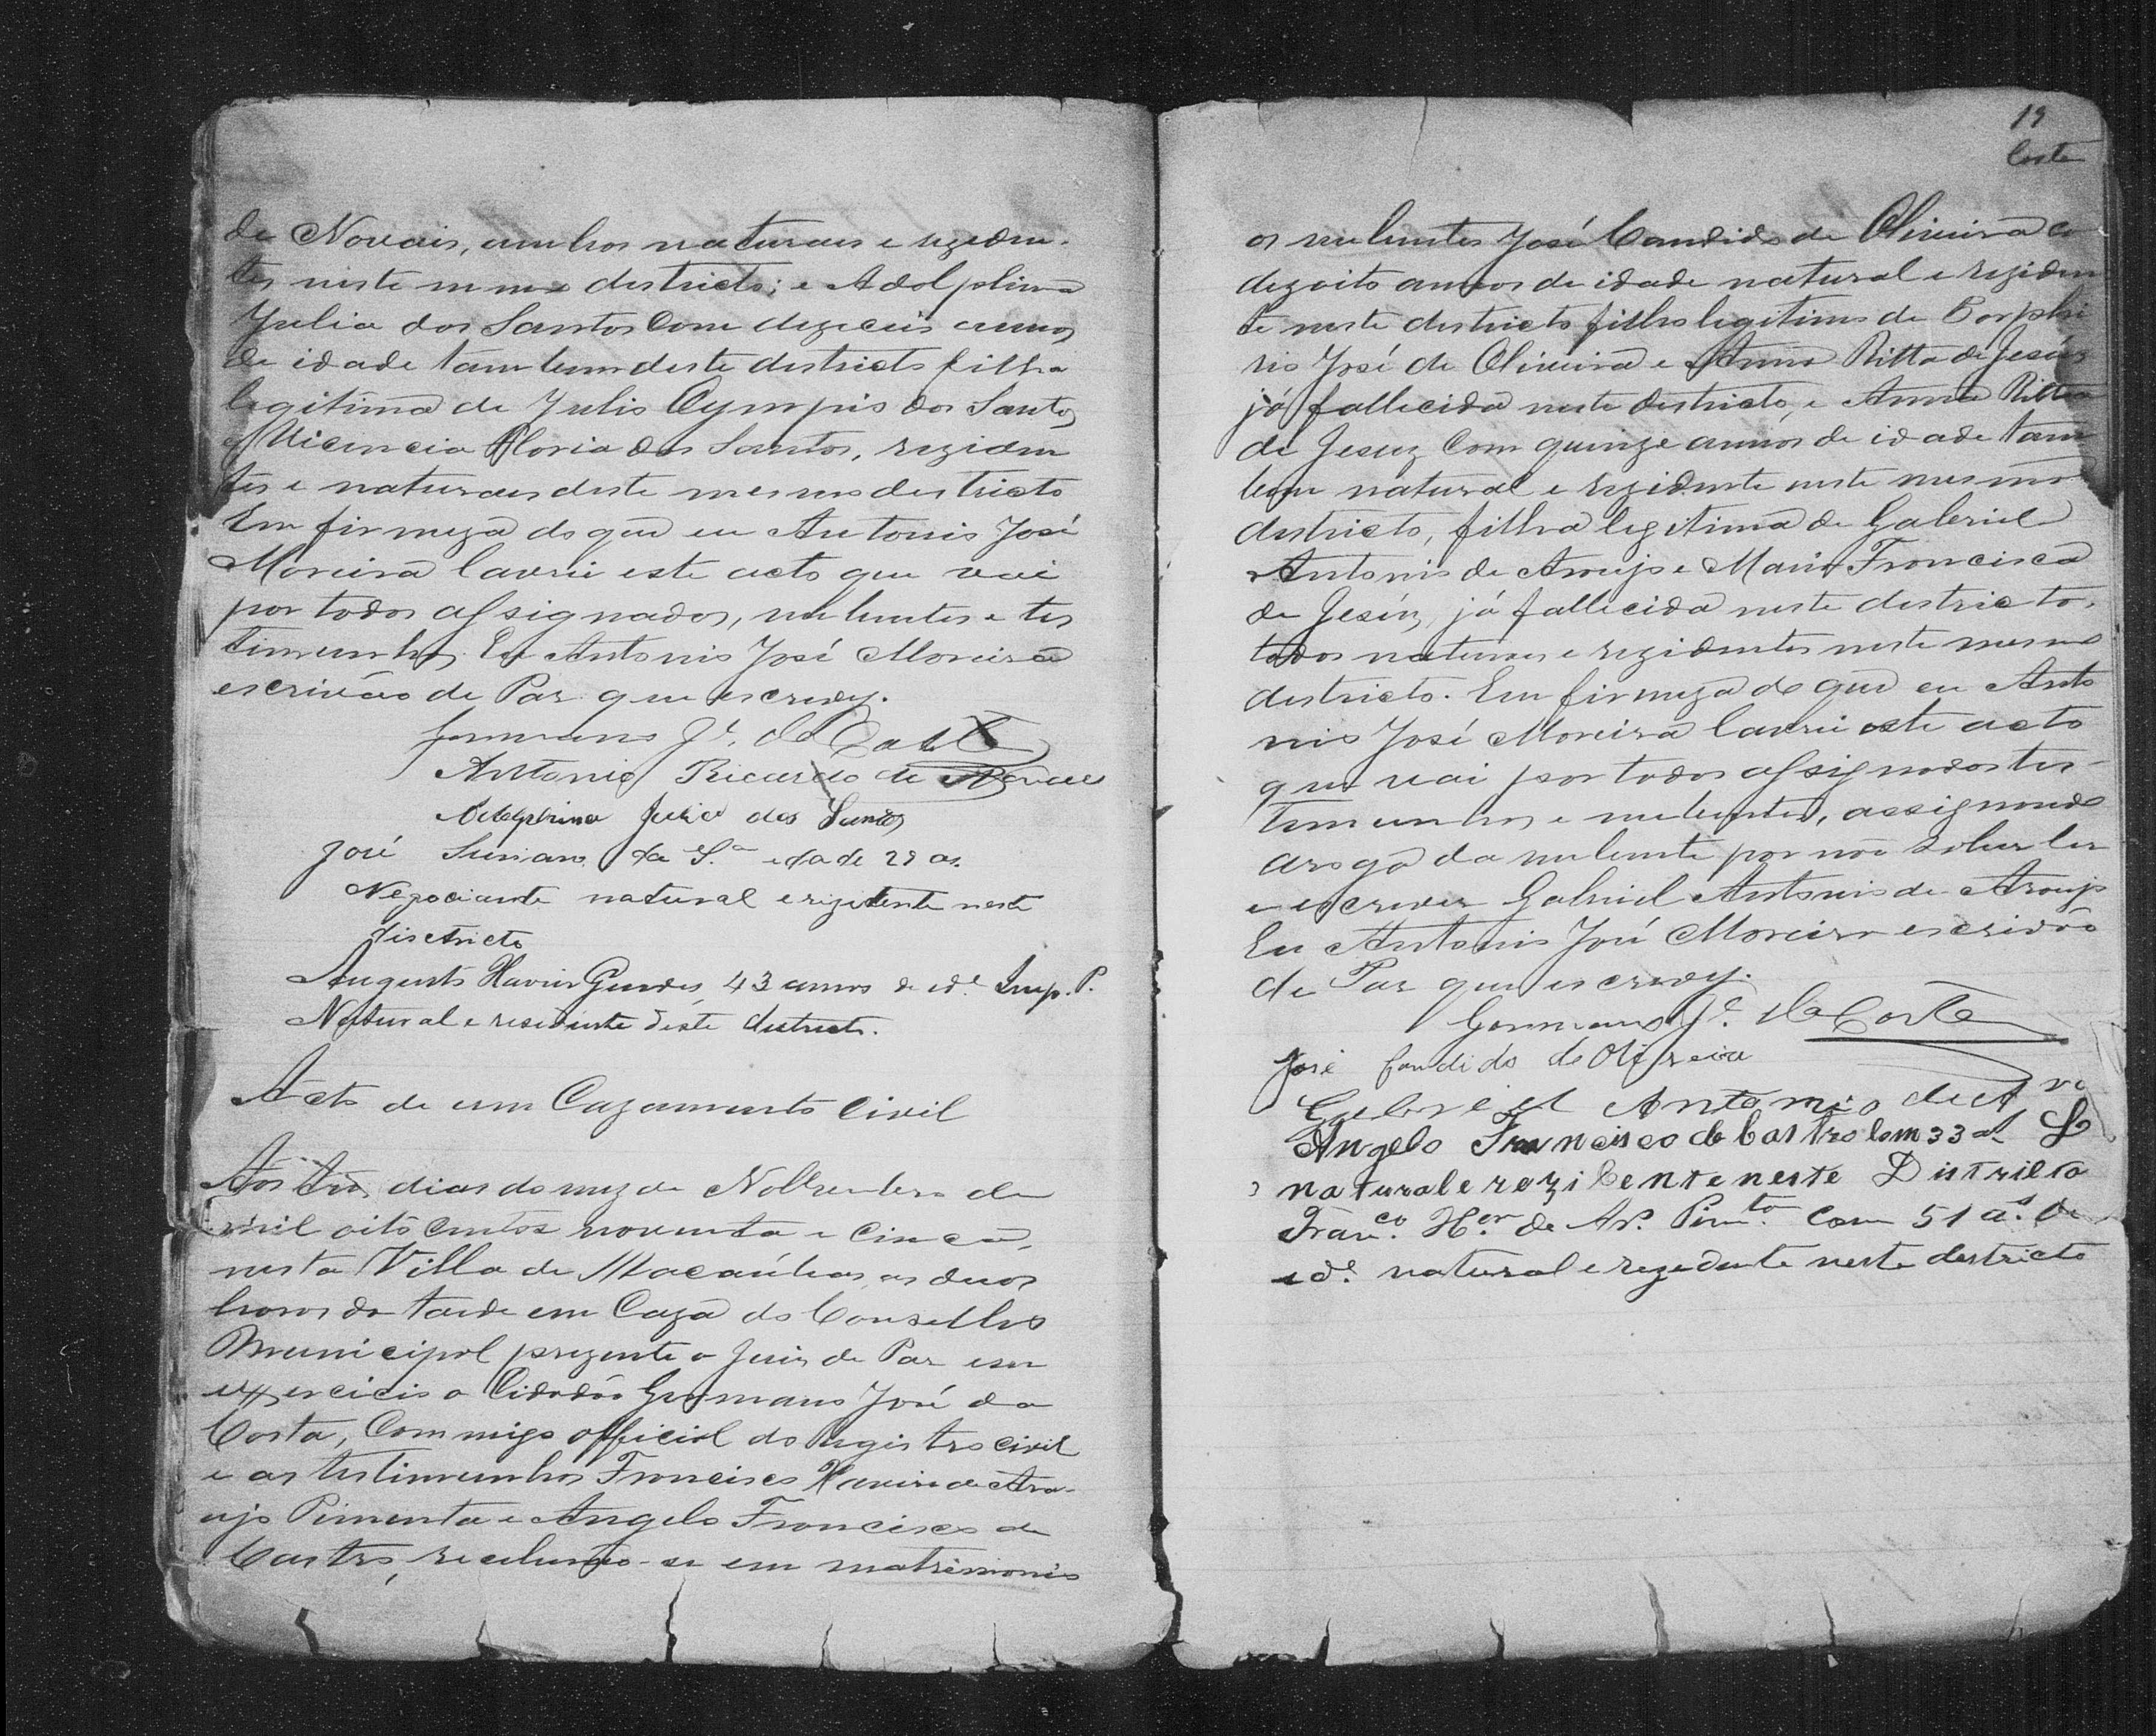 de Novais, ambos naturaes e rezeden-
tes neste mesmo destricto; e Adolphina
Julia dos Santos Com dezeceis annos
de idade tambem deste destricto filha
legitima de Julio Olympio dos Santos
e Vicencia Floria dos Santos, reziden
tes e naturaes deste mesmo destricto
Em firmeza do que eu Antonio José
Moreira lavrei este acto que vai
por todos assignados, nubentes e tes
timunhas. Eu Antonio José Moreira
escrivão de Paz que escrevy.
Germano Jé. da Costa
Antonio Ricardo de Novaes
Adolphina Julia dos Santos
José Suriano da Sa. edade 29 as.
Negociante natural e rezidente neste
districto
Augusto Xavier Guedes, 43 annos de ide. Emp. P.
Natural e residente deste destricto.
Acto de um Cazamento Civil
Aos tres dias do mez de Novembro de
mil oito centos noventa e cinco,
nesta Villa de Macaúbas, as duas
horas da tarde em Caza do Conselho
Municipal prezente o Juiz de Paz em
exercicio o Cidadão Germano José da
Costa, Commigo official do registro civil
e as testimunhas Francisco Xavier de Ara-
ujo Pimenta e Angelo Francisco de
Castro, receberão-se em matrimonio
19
Costa
os nubentes José Candido de Oliveira co
dezoito annos de idade natural e reziden
te neste destricto filho legitimo de Porphi
rio José de Oliveira e Anna Ritta de Jesús
já fallecida neste destricto, e Anna Ritta
de Jesuz Com quinze annos de idade tam
bem natural e rezidente neste mesmo
destricto, filha legitima de Gabriel
Antonio de Araujo e Maria Francisca
de Jesús, já fallecida neste destricto,
todos naturaes e rezidentes neste mesmo
destricto. Em firmeza do que eu Anto
nio José Moreira lavrei este acto
que vai por todos assignados tes-
temunhas e nubentes, assignando
arogo da nubente por não saber ler
e escrever Gabriel Antonio de Araujo
Eu Antonio José Moreira escrivão
de Paz que escrevy.
Germano Jé. da Costa
José Candido de Oliveira
Gabriel Antonio de Ar
Angelo Francisco de Castro Com 33 as
natural e rezidente neste Districto
Franco. Xer. de Ar. Pimta. Com 51 as. de
ide. natural e rezedente neste destricto